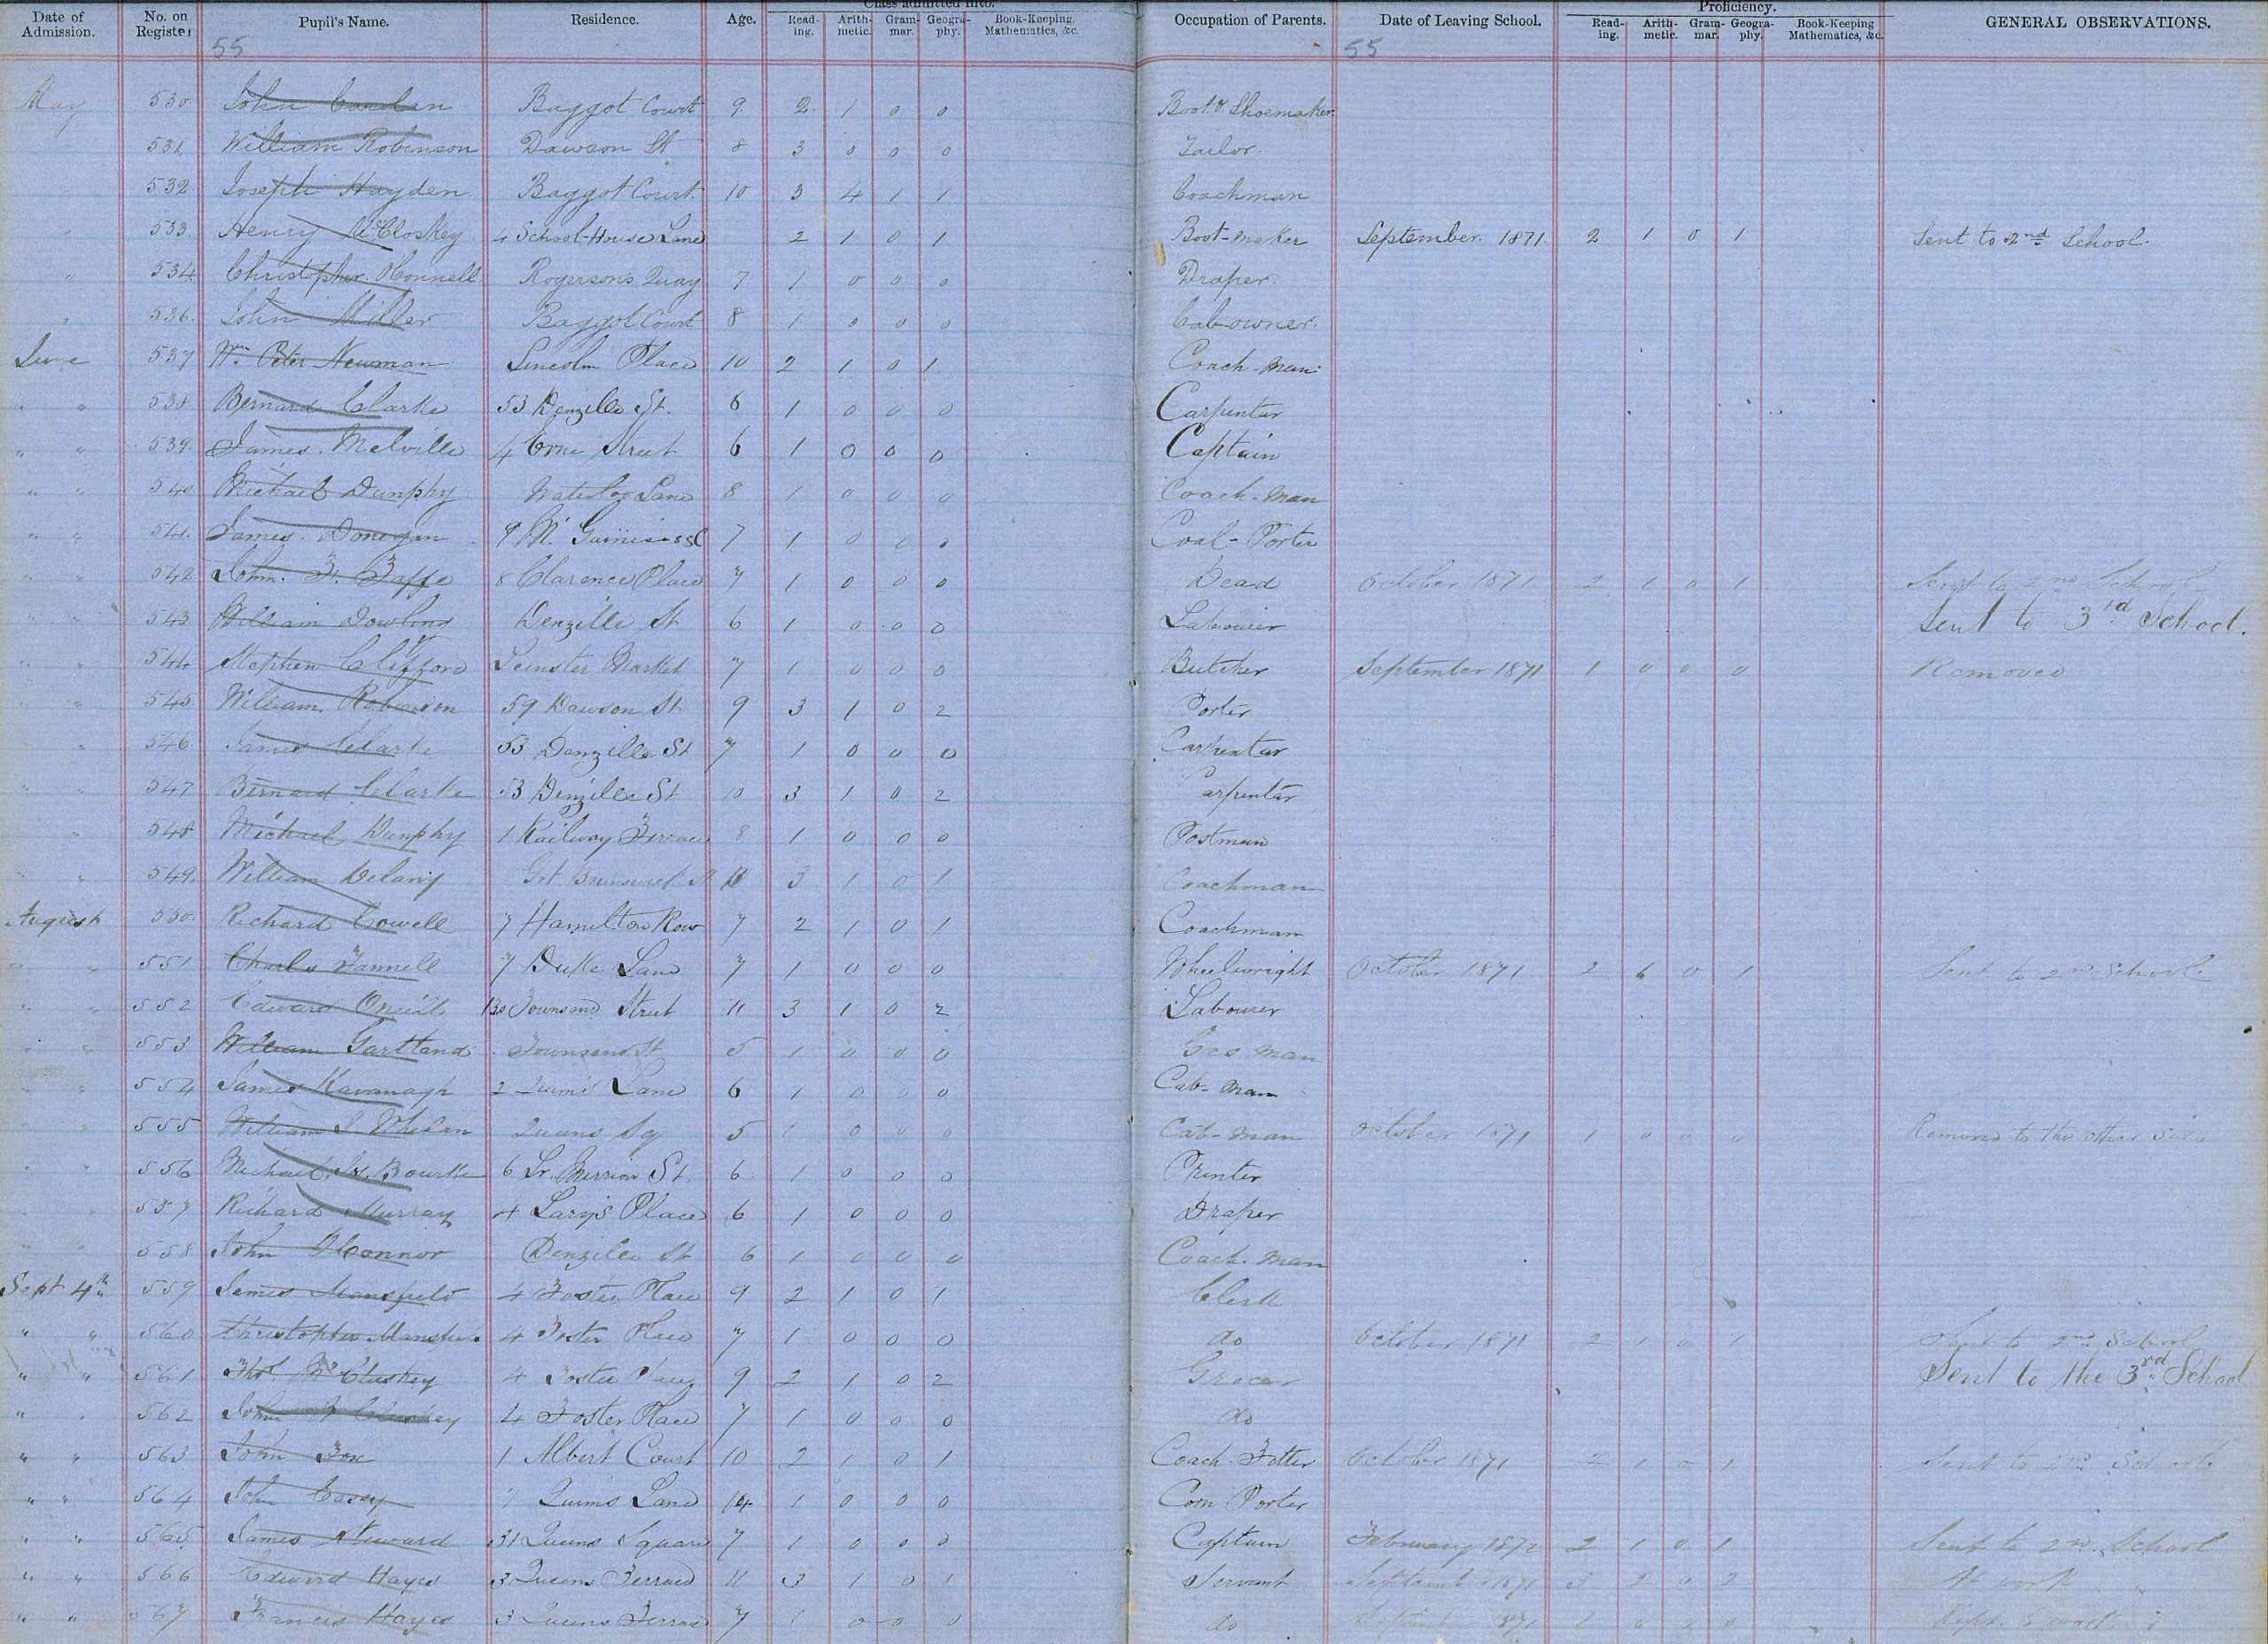 Date of Admission. No. on Register Pupil's Name. Residence. Age. Class admitted into. Reading. Arithmetic. Grammar. Geography. Book-Keeping, Mathematics, &c. Occupation of Parents. Date of Leaving School. Proficiency. Reading. Arithmetic. Grammar. Geography. Book-Keeping Mathematics, &c. GENERAL OBSERVATIONS.
55 55
May 530 John Baggot Court 9 2 1 0 0 Boot & Shoemaker
531 William Robinson Dawson St 8 3 0 0 0 Tailor
532 Joseph Hayden Baggot Court 10 3 4 1 1 Coachman
" 533 Henry McCloskey 4 School-House Lane 2 1 0 1 Boot-maker September. 1871. 2 1 0 1 Sent to 2nd School.
" 534 Christopher OConnell Rogersons Quay 7 1 0 0 0 Draper
" 536. John Miller Baggot Court 8 1 0 0 0 Cab-owner.
June 537 Wm Peter Newman Lincoln Place 10 2 1 0 1 Coach-man
" " 538 Bernard Clarke 53 Denzille St. 6 1 0 0 0 Carpenter
" " 539 James Melville 4 Erne Street 6 1 0 0 0 Captain
" " 540 Michael Dunphy Waterloo Lane 8 1 0 0 0 Coach-man
" " 541. James Donegan 9 7 1 0 0 0 Coal-Porter
" " 542 John. F. Taffe 8 Clarence Place 7 1 0 0 0 Dead October 1871 2 1 0 1 Sent to 2nd School
" " 543 William Dowling Denzille St 6 1 0 0 0 Labourer Sent to 3rd School.
" " 544 Stephen Clifford Leinster Market 7 1 0 0 0 Butcher September 1871 1 0 0 0 Removed
" " 545 William Robinson 59 Dawson St 9 3 1 0 2 Porter
" " 546 James Clarke 53 Denzille St 7 1 0 0 0 Carpenter
" " 547 Bernard Clarke 53 Denzille St 10 3 1 0 2 Carpenter
" " 548 Michael Dunphy 1 Railway Terrace 8 1 0 0 0 Postman
" " 549. William Delany Gt Brunswick St 3 1 0 1 Coachman
August 550. Richard Cowell 7 Hamilton Row 7 2 1 0 1 Coachman
" " 551 Charles Fannell 7 Duke Lane 7 1 0 0 0 Wheelwright October 1871 2 0 1 Sent to 2nd School
" " 552 Edward Oneill 130 Townsend Street 11 3 1 0 2 Labourer
" " 553 William Gartland Townsend St 5 1 0 0 0 Gas man
" " 554 James Kavanagh 2 Quin's Lane 6 1 0 0 0 Cab-man
" " 555 William J Whelan Queens Sq 5 1 0 0 0 Cab-man October 1871 1 0 0 0 Removed to the other side
" " 556 Michael Bourke 6 Lr. Merrion St. 6 1 0 0 0 Printer
" " 557 Richard Murray 4 Place 6 1 0 0 0 Draper
" " 558 John OConnor Denzille St 6 1 0 0 0 Coach-man
Sept 4th 559 James Mansfield 4 Foster Place 9 2 1 0 1 Clerk
" " 560 Christopher Mansfield 4 Foster Place 7 1 0 0 0 do October 1871 2 1 0 1 Sent to 2nd School
" " 561 Thos McCluskey 4 Foster Place 9 2 1 0 2 Grocer Sent to the 3rd School
" " 562 John McCluskey 4 Foster Place 7 1 0 0 0 do
" " 563 John Fox 1 Albert Court 10 2 1 0 1 Coach Fitter October 1871 2 1 0 1 Sent to 2nd School
" " 564 John Casey 7 Quins Lane 1 0 0 0 Corn Porter
" " 565 James Steward 31 Queens Square 7 1 0 0 0 Captain February 1872 2 1 0 1 Sent to 2nd School
" " 566 Edward Hayes 3 Queens Terrace 11 3 1 0 1 Servant September 1871 3 2 0 2 At work
" " 567 Francis Hayes 3 Queens Terrace 7 1 0 0 0 do September 1871 1 0 0 0